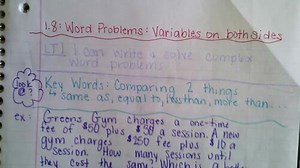 1.8: Word Problems: Variables on both sides
LT I can write & solve complex
word problems
look 4
Key Words: Comparing 2 things
same as, equal to, less than, more than...
ex: Greens Gym charges a one-time
fee of $50 plus a session. A new
gym charges $250 plus $10 a
session. How many sessions until
they cost the same?